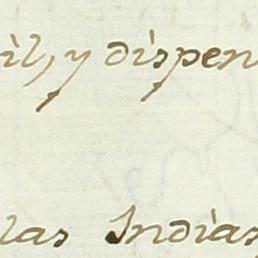 il, y dispen
las Indias